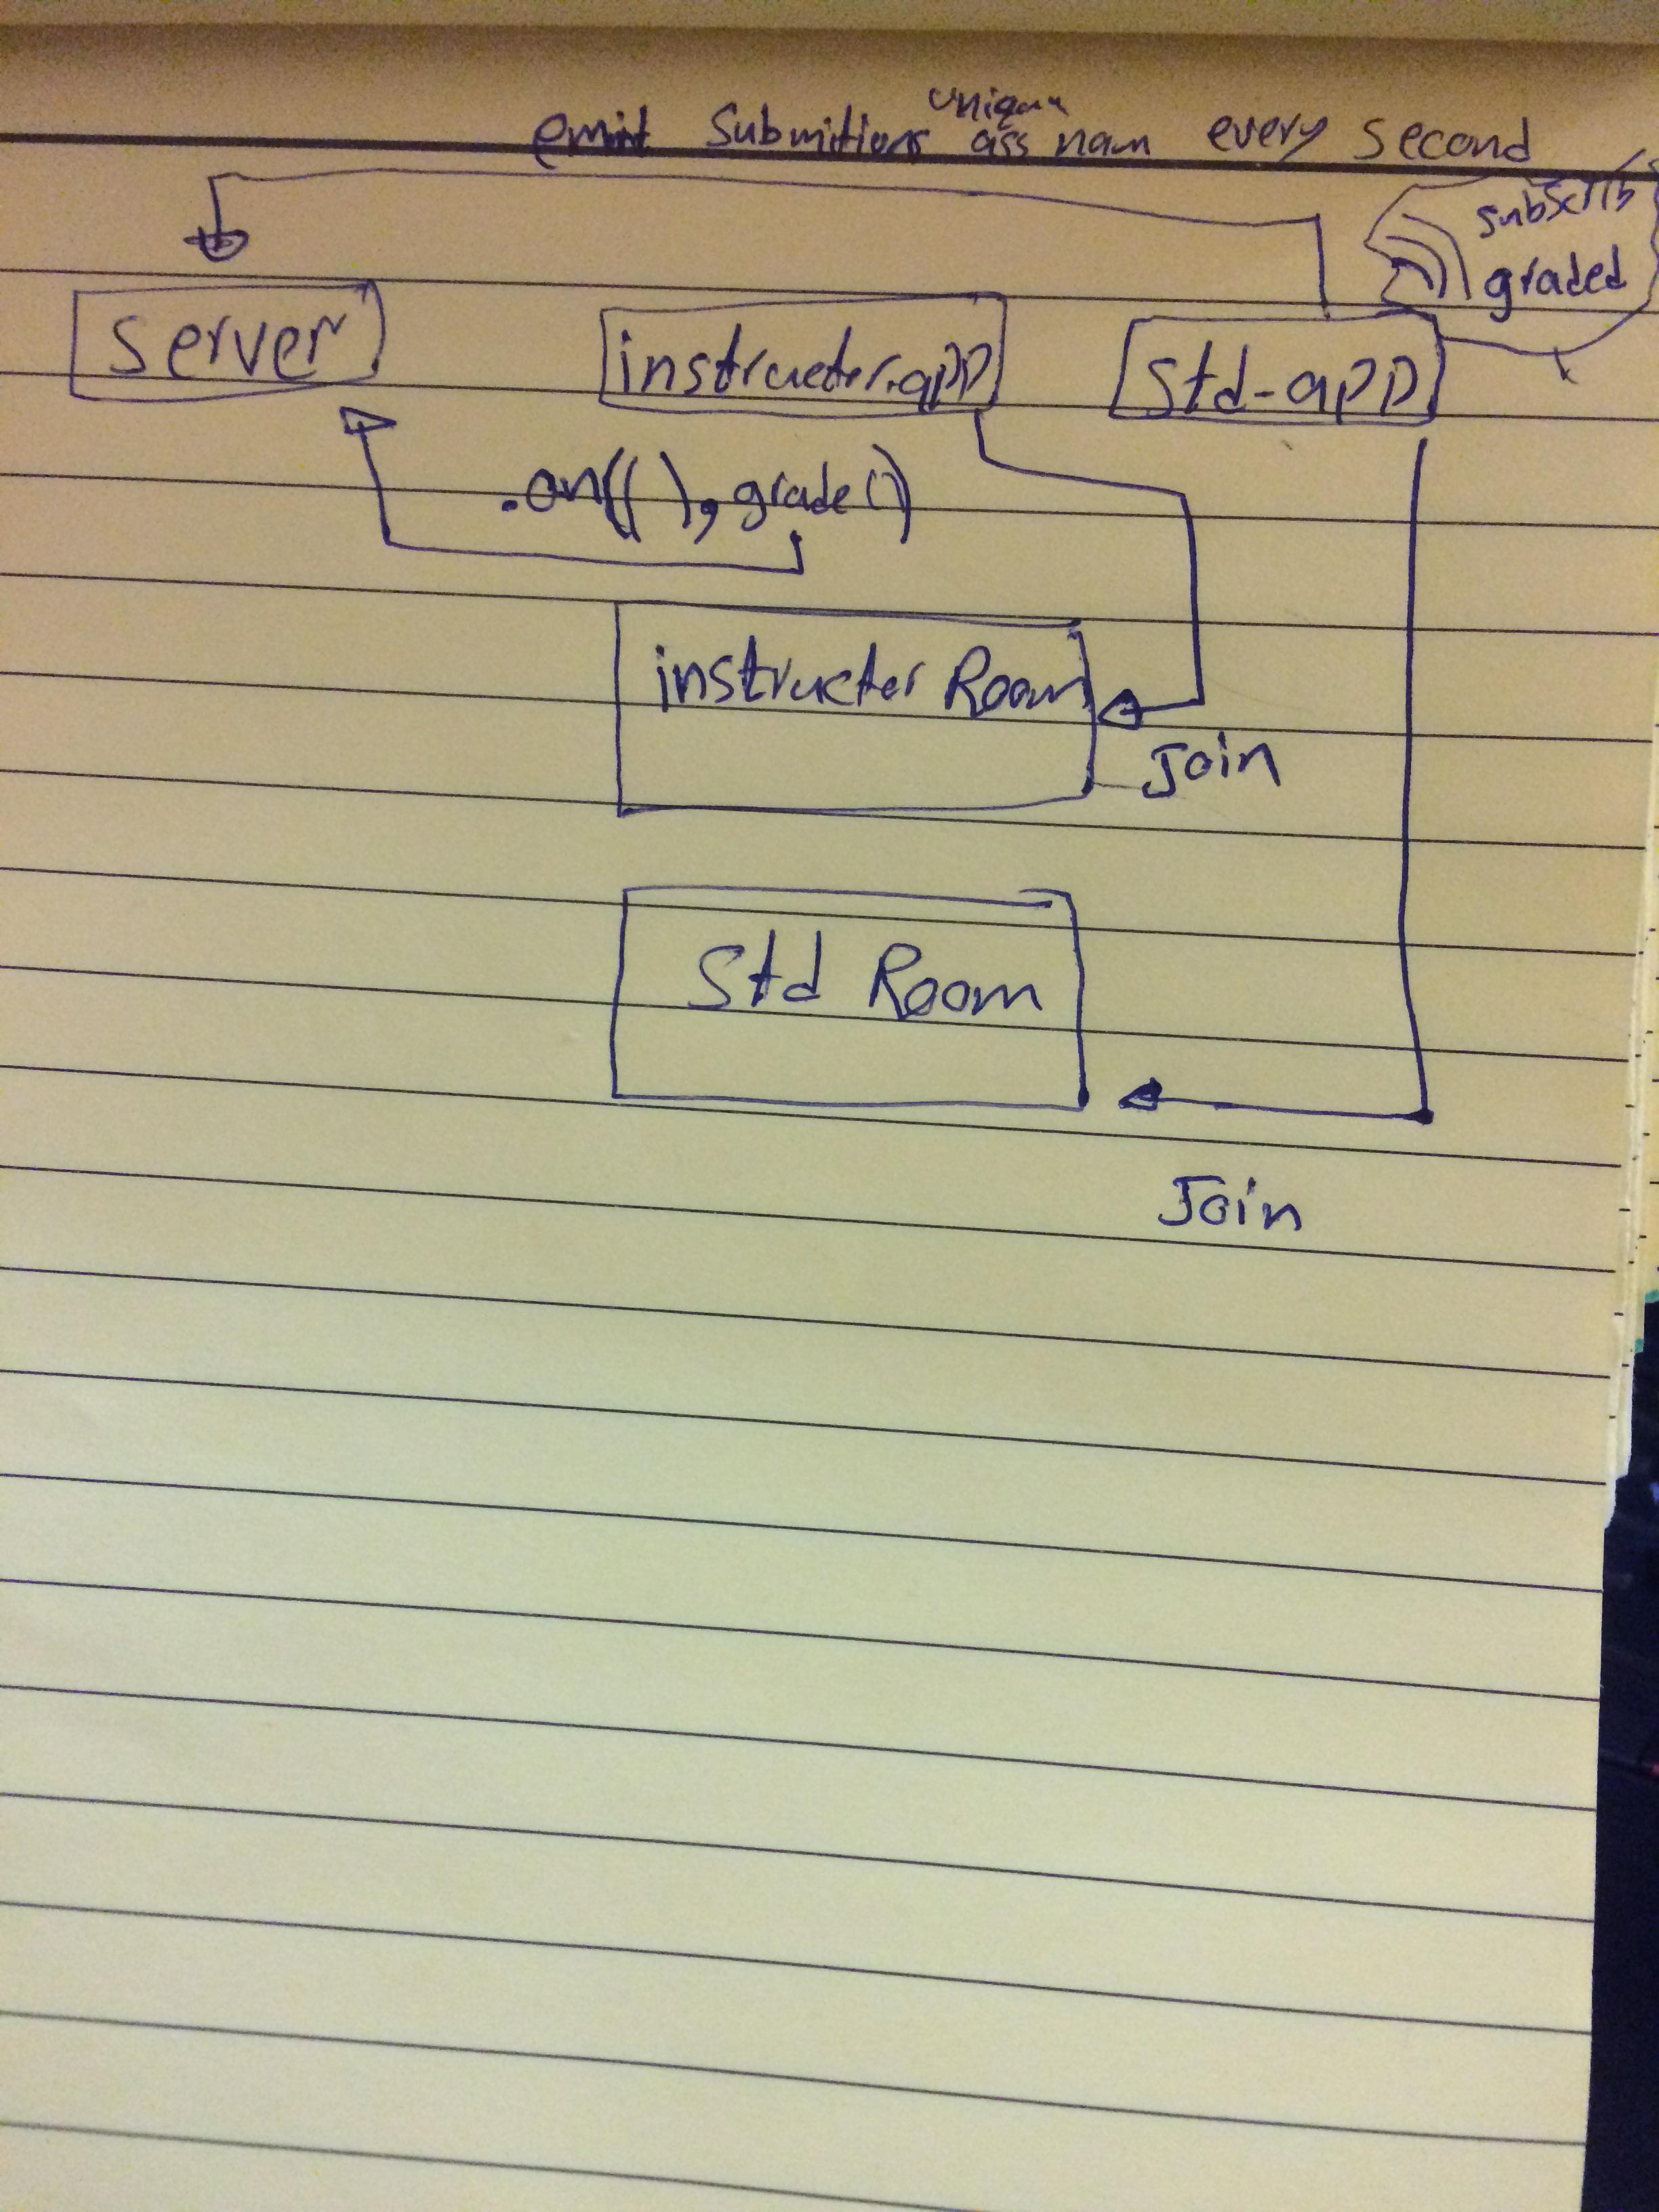 unique
emit Submitions ass nam every second
subscrib
graded
server
instructer.app
std-app
.on(( ), grade())
instructer Room
Join
Std Room
Join